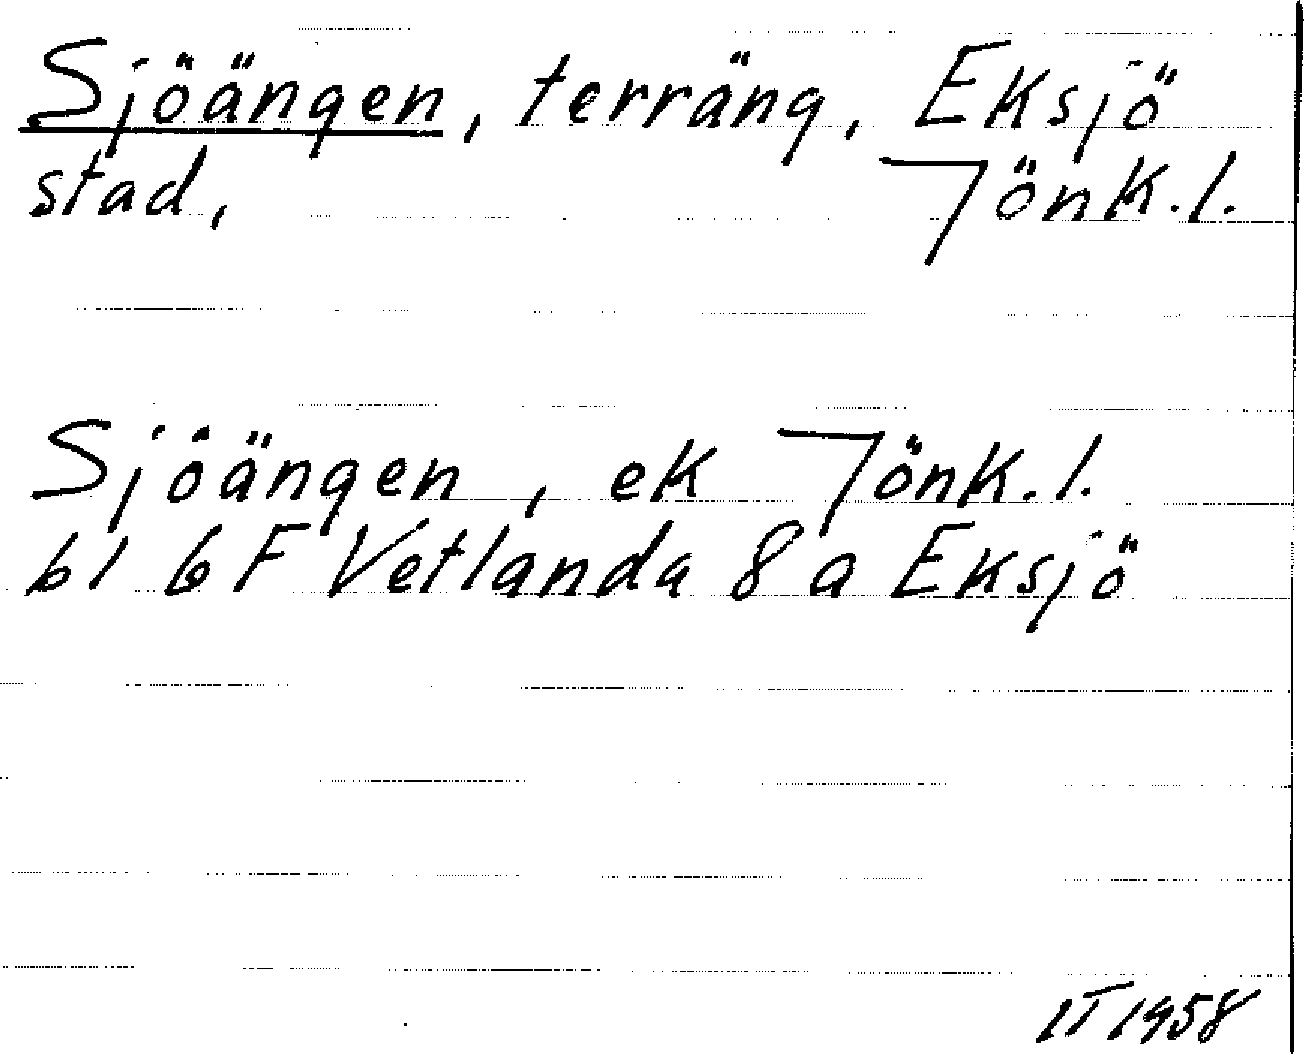 Sjöängen, terräng, Eksjö
stad, Jönk.l.
Sjöängen, ek Jönk.l.
bl 6 F Vetlanda 8 a Eksjö
1958